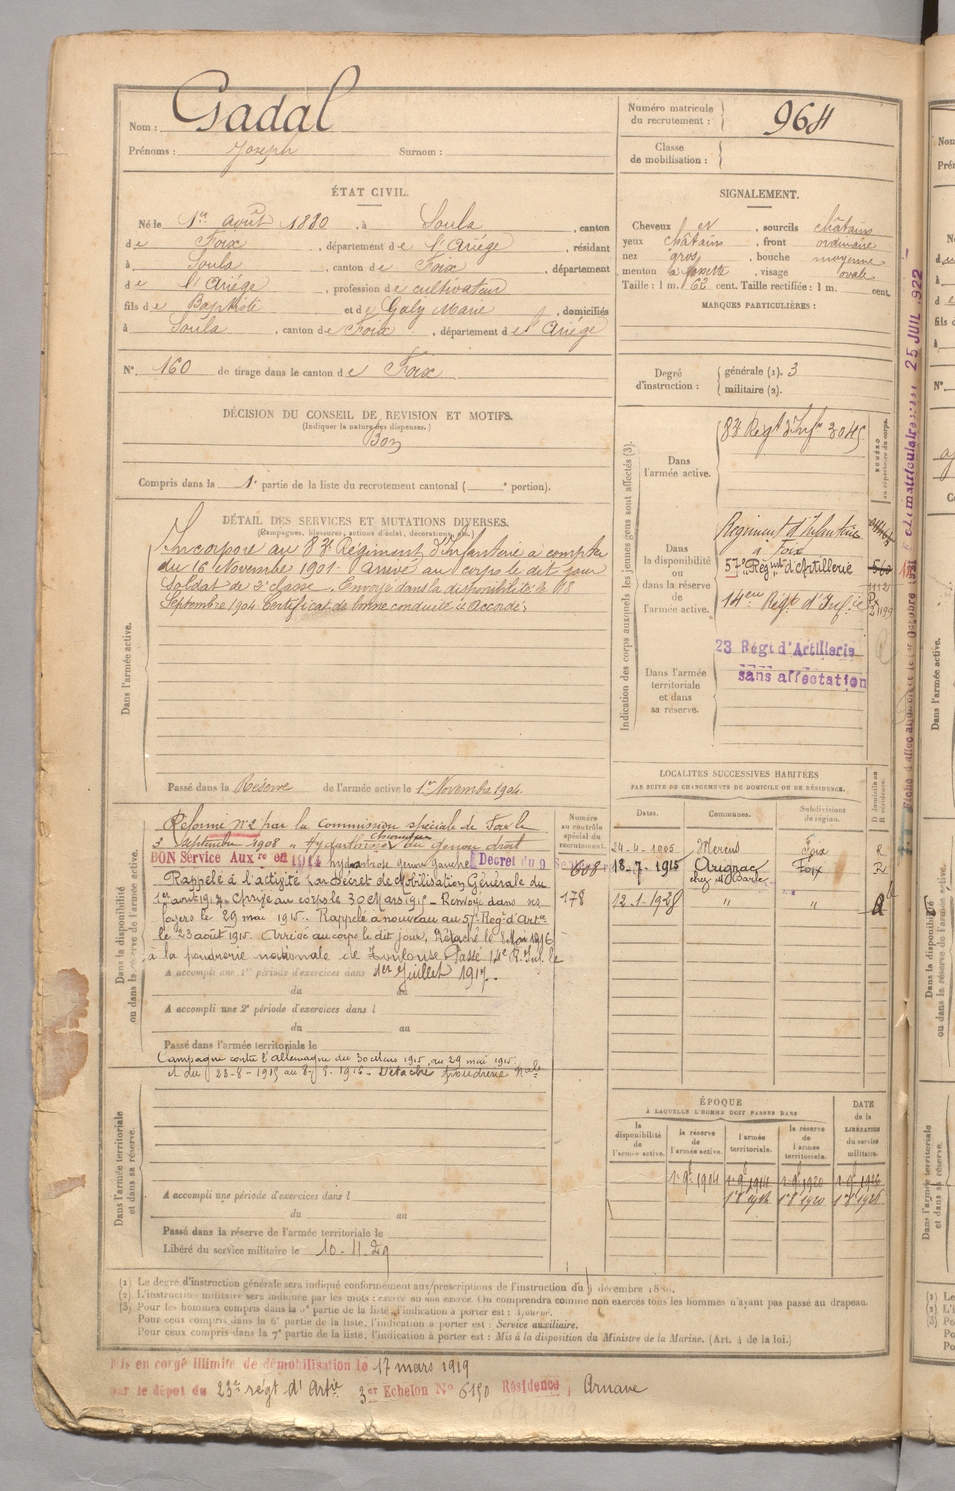 Nom : Gadal
Prénoms : Joseph Surnom :
Numéro matricule du recrutement : 964
Classe de mobilisation :
ÉTAT CIVIL.
Né le 1er août 1880, à Soula, canton
de Foix, département de l'Ariége, résidant
à Soula, canton de Foix, département
de l'Ariége, profession de cultivateur
fils de Baptiste et de Galy Marie, domiciliés
à Soula, canton de Foix, département de l'Ariége
N° 160 de tirage dans le canton de Foix
SIGNALEMENT.
Cheveux et, sourcils châtains
yeux châtains, front ordinaire
nez gros, bouche moyenne
menton à fossette, visage ovale
Taille : 1 m. 62 cent. Taille rectifiée : 1 m. cent.
MARQUES PARTICULIÈRES :
Degré d'instruction : générale (1). 3
militaire (2).
DÉCISION DU CONSEIL DE REVISION ET MOTIFS.
(Indiquer la nature des dispenses.)
Bon
Compris dans la 1e partie de la liste du recrutement cantonal ( e portion).
DÉTAIL DES SERVICES ET MUTATIONS DIVERSES.
(Campagnes, blessures, actions d'éclat, décorations, etc.)
Dans l'armée active.
Incorporé au 83e Régiment d'Infanterie à compter
du 16 Novembre 1901. arrivé au corps le dit jour
Soldat de 2e classe. Envoyé dans la disponibilité le 18
Septembre 1904 Certificat de bonne conduite "Accordé"
Passé dans la Réserve de l'armée active le 1er Novembre 1904
Indication des corps auxquels les jeunes gens sont affectés (3).
NUMÉRO au répertoire du corps.
Dans l'armée active.
83e Régt d'Infie 3045
Dans la disponibilité ou dans la réserve de l'armée active.
Régiment d'Infanterie
à Foix
57e Régmt d'Artillerie
14eme Régt d'Infie
Dans l'armée territoriale et dans sa réserve.
23 Régt d'Artillerie
sans affectation
25 JUIL 1922
LOCALITÉS SUCCESSIVES HABITÉES
PAR SUITE DE CHANGEMENTS DE DOMICILE OU DE RÉSIDENCE.
Dates. Communes. Subdivisions de région. D domicile ou R résidence.
Mercus Foix R
18-7-1915 Arignac Foix R
chez M. Barbe
12-1-1928 " "
Dans la disponibilité ou dans la réserve de l'armée active.
Numéro au contrôle spécial du recrutement.
608
178
Réformé n° 2 par la commission spéciale de Foix le
3 Septembre 1908 " Hydarthrose chronique du genou droit
BON Service Auxre en 1914 hydarthrose genou gauche Décret du 9 Septembre
Rappelé à l'activité par Décret de Mobilisation Générale du
1er août 1914. Arrivé au corps le 30 Mars 1915 - Renvoyé dans ses
foyers le 29 mai 1915. Rappelé à nouveau au 57e Régt d'Artie
le 23 août 1915. Arrivé au corps le dit jour. Détaché le 8 Mai 1916
à la poudrerie nationale de Toulouse. Passé 14e R. Inf. le
1er Juillet 1917.
A accompli une 1re période d'exercices dans l
du au
A accompli une 2e période d'exercices dans l
du au
Passé dans l'armée territoriale le
Campagne contre l'Allemagne du 30 Mars 1915 au 29 mai 1915.
et du 23-8-1915 au 8-5-1916 - Détaché poudrerie Nale
Dans l'armée territoriale et dans sa réserve.
A accompli une période d'exercices dans l
du au
Passé dans la réserve de l'armée territoriale le
Libéré du service militaire le 10.11.29
ÉPOQUE
À LAQUELLE L'HOMME DOIT PASSER DANS
la disponibilité de l'armée active.
la réserve de l'armée active.
l'armée territoriale.
la réserve de l'armée territoriale.
DATE de la LIBÉRATION du service militaire.
1er 9bre 1904 1er 9bre 1914 1er 9bre 1920 1er 9bre 1926
(1) Le degré d'instruction générale sera indiqué conformément aux prescriptions de l'instruction du 5 décembre 1889.
(2) L'instruction militaire sera indiquée par les mots : exercé ou non exercé. On comprendra comme non exercés tous les hommes n'ayant pas passé au drapeau.
(3) Pour les hommes compris dans la 5e partie de la liste, l'indication à porter est : Ajourné.
Pour ceux compris dans la 6e partie de la liste, l'indication à porter est : Service auxiliaire.
Pour ceux compris dans la 7e partie de la liste, l'indication à porter est : Mis à la disposition du Ministre de la Marine. (Art. 4 de la loi.)
Mis en congé illimité de démobilisation le 17 mars 1919
par le dépôt du 23e régt d'Artie 3er Echelon N° 6150 Résidence, Arnave